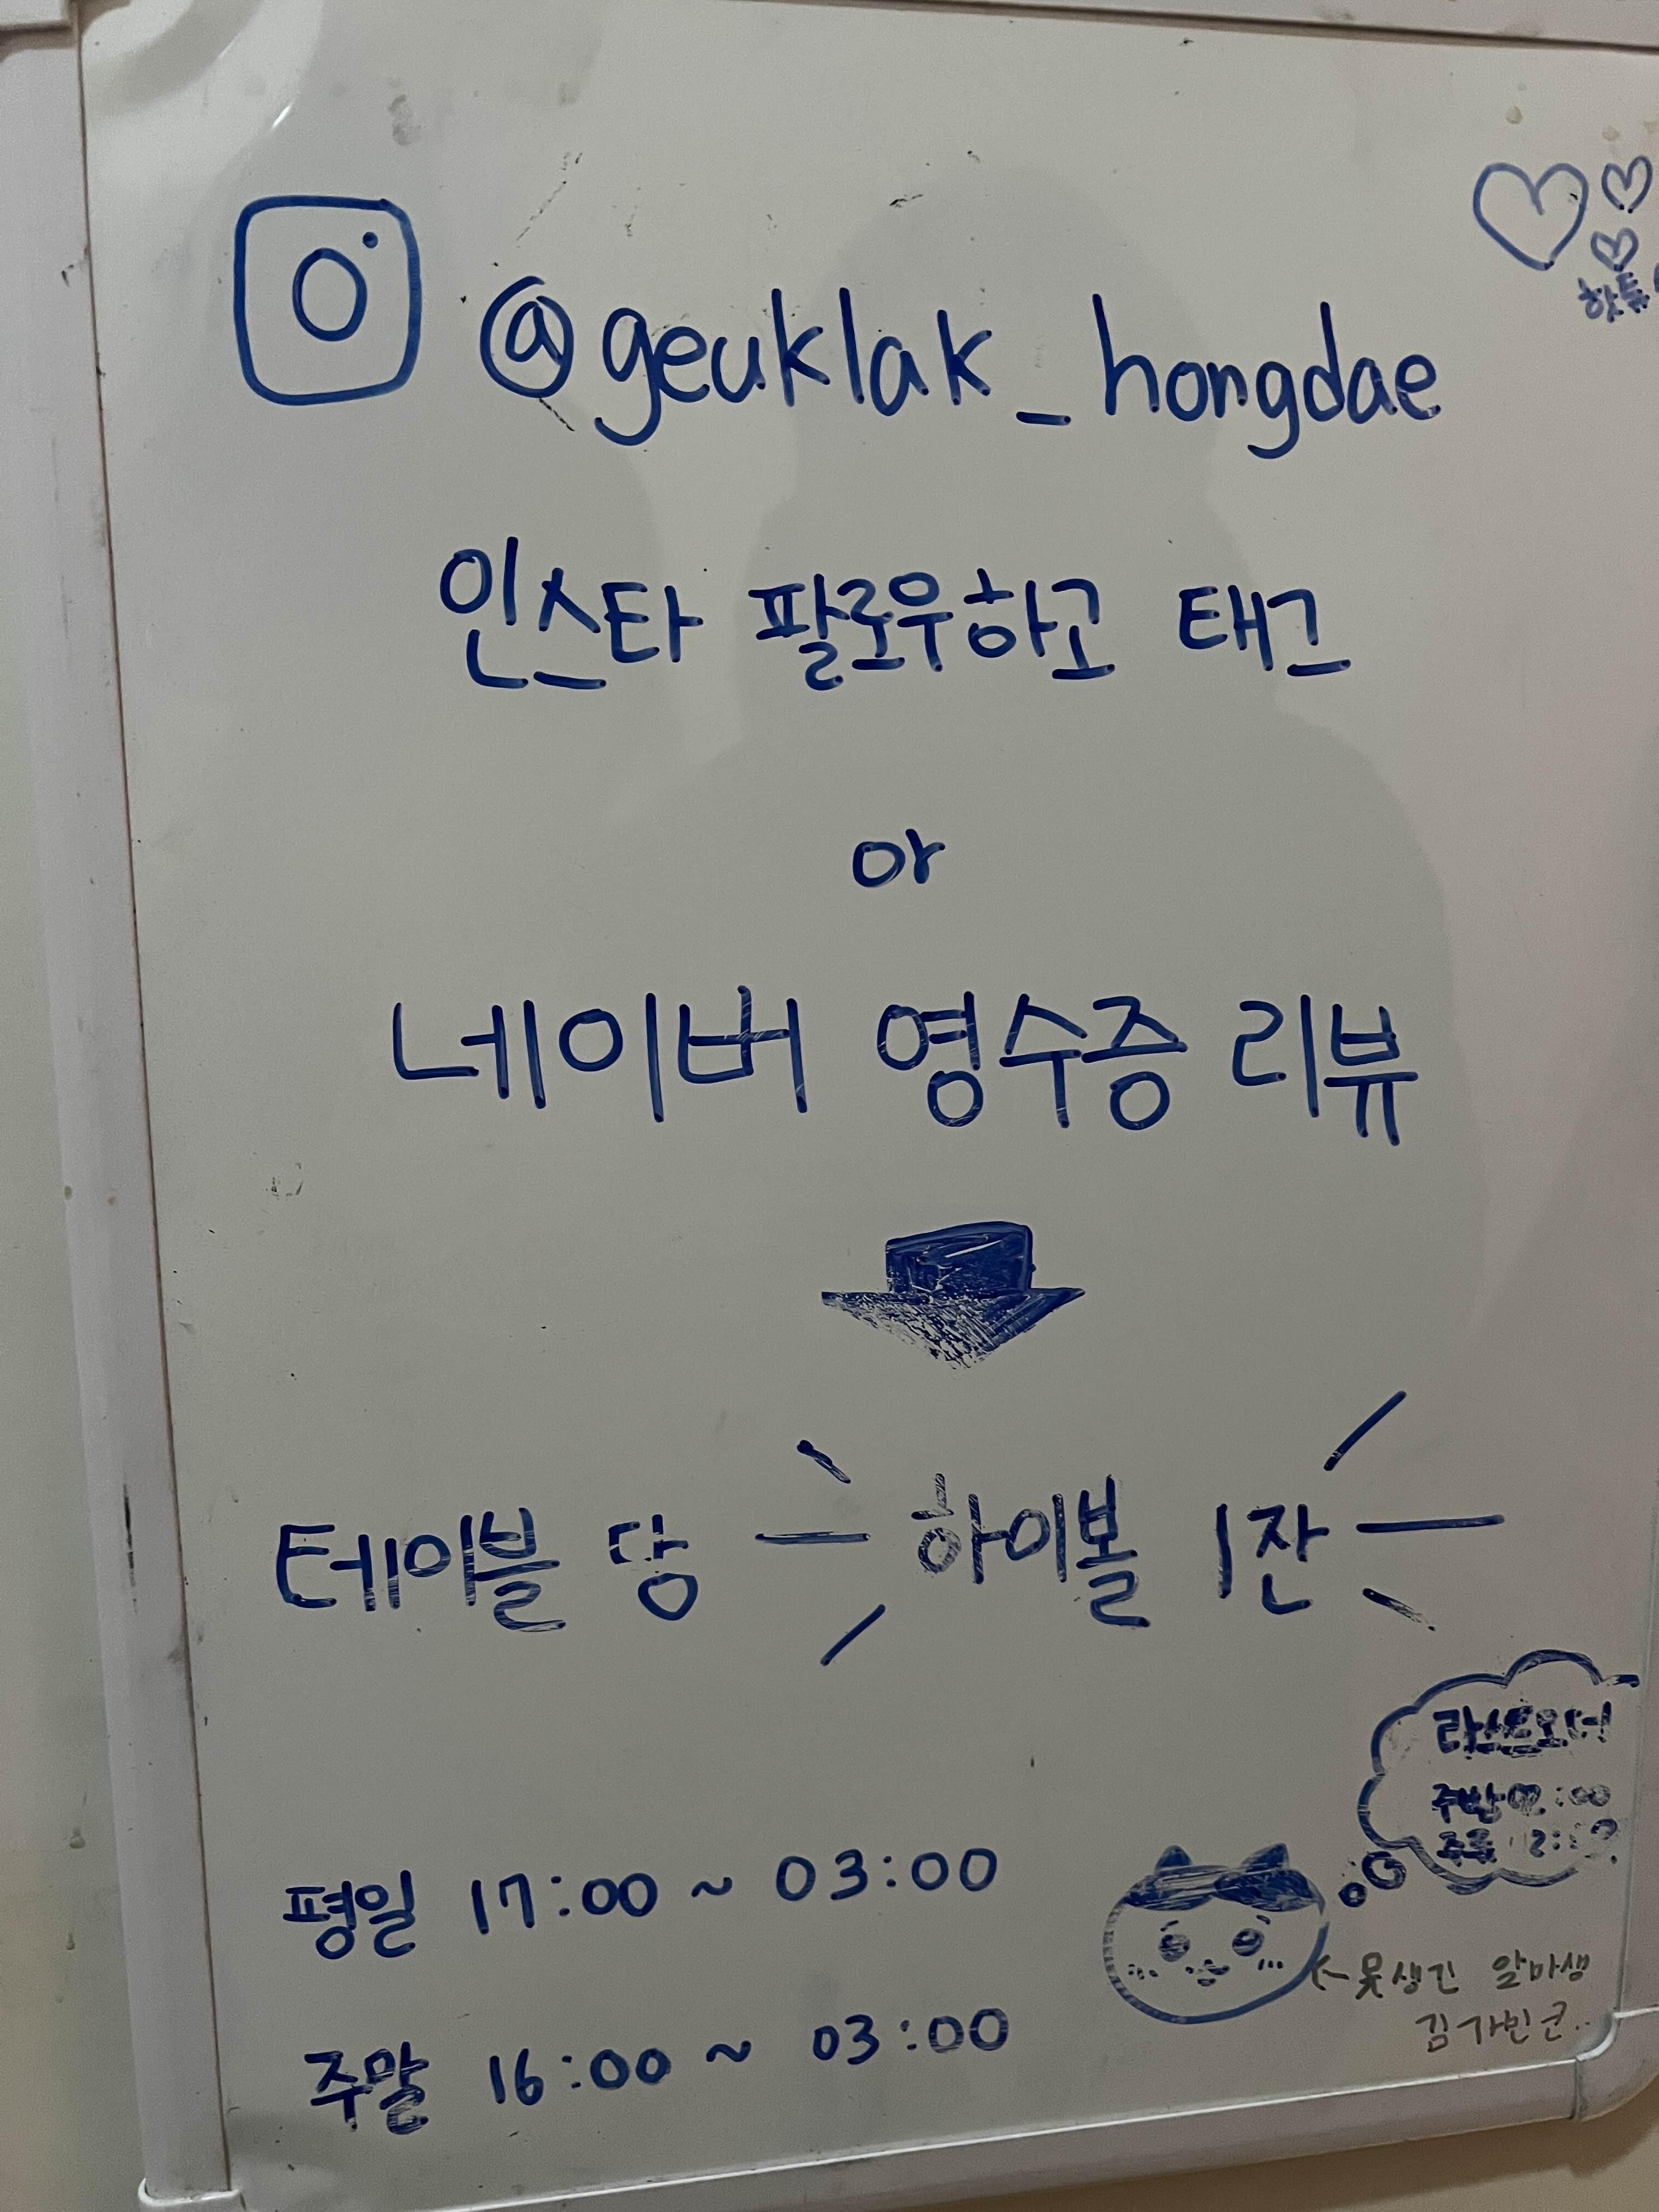 @geuklak_hongdae
인스타 팔로우하고 태그
or
네이버 영수증 리뷰
테이블 당 하이볼 1잔
라스트오더
주방 02:00
주류
평일 17:00 ~ 03:00
주말 16:00 ~ 03:00
←못생긴 알바생